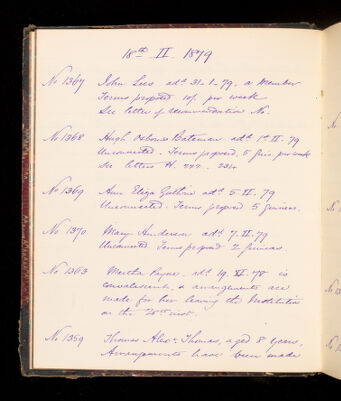 18th II. 1879
No 1367 John Lees adt. 31-1-79. a Member
Terms proposed 10/. per week
See letter of recommendation No.
No 1368 Hugh Osborne Bateman adt. 1st II. 79
Unconnected. Terms proposed, 5 guis. per week
See letters H. 222. 234.
No 1369 Ann Eliza adt. 5 II. 79
Unconnected. Terms proposed 5 guineas.
No 1370 Mary Anderson adt. 7. II. 79
Unconnected. Terms proposed 2 guineas.
No 1363 Martha Payne. adt. 19. XI. 78 is
convalescent, & arrangements are
made for her leaving the Institution
on the 28th inst.
No 1359 Thomas Alexr. Thomas, aged 8 years.
Arrangements have been made